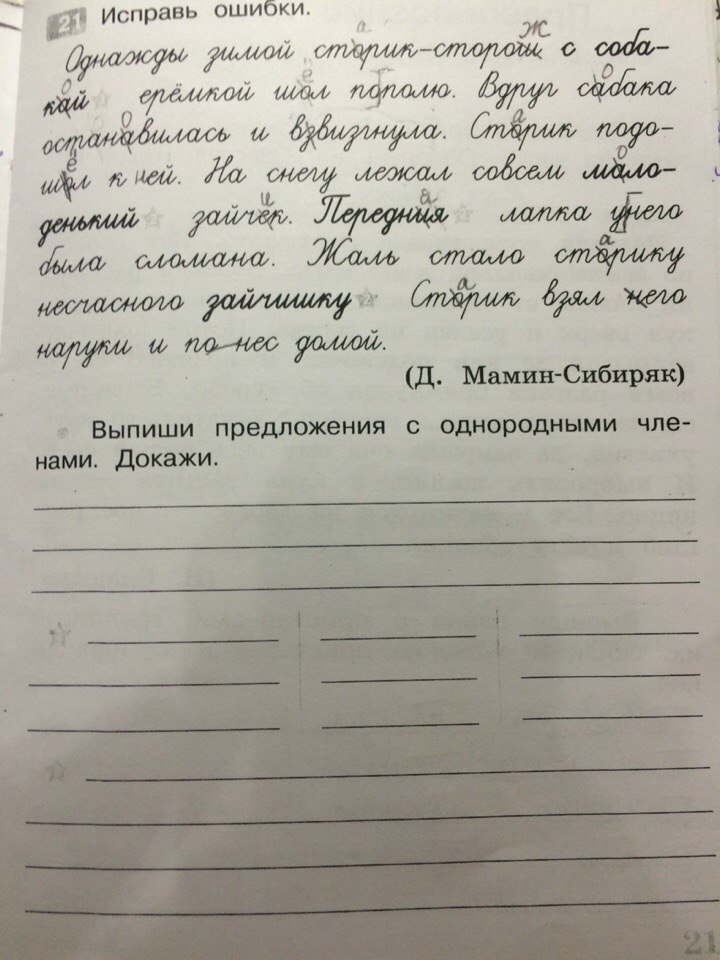 21 Исправь ошибки.
Однажды зимой сторик-сторош с соба-
кай ерёмкой шол пополю. Вдруг сабака
останавилась и взвизгнула. Сторик подо-
шол к ней. На снегу лежал совсем мало-
денький зайчек. Передния лапка унего
была сломана. Жаль стало сторику
несчасного зайчишку Сторик взял него
наруки и по нес домой.
(Д. Мамин-Сибиряк)
Выпиши предложения с однородными чле-
нами. Докажи.
21